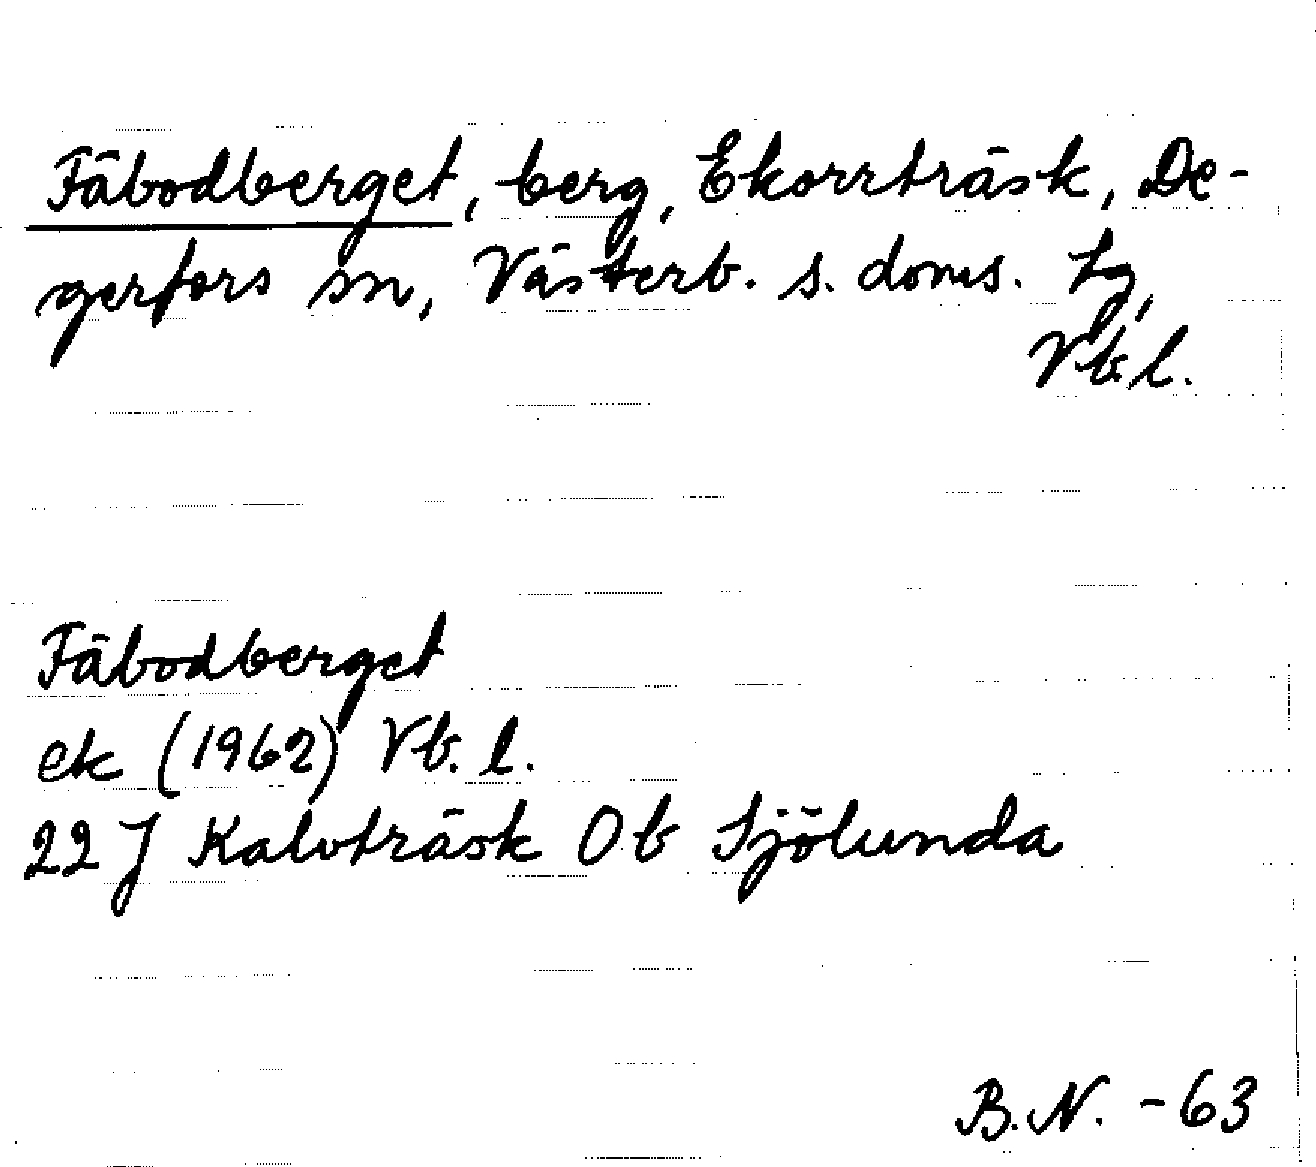 Fäbodberget, berg, Ekorrträsk, De-
gerfors sn, Västerb. s. doms. Lg,
Vb.l.
Fäbodberget
ek (1962) Vb. l.
22 J Kalvträsk Ob Sjölunda
B.N. -63